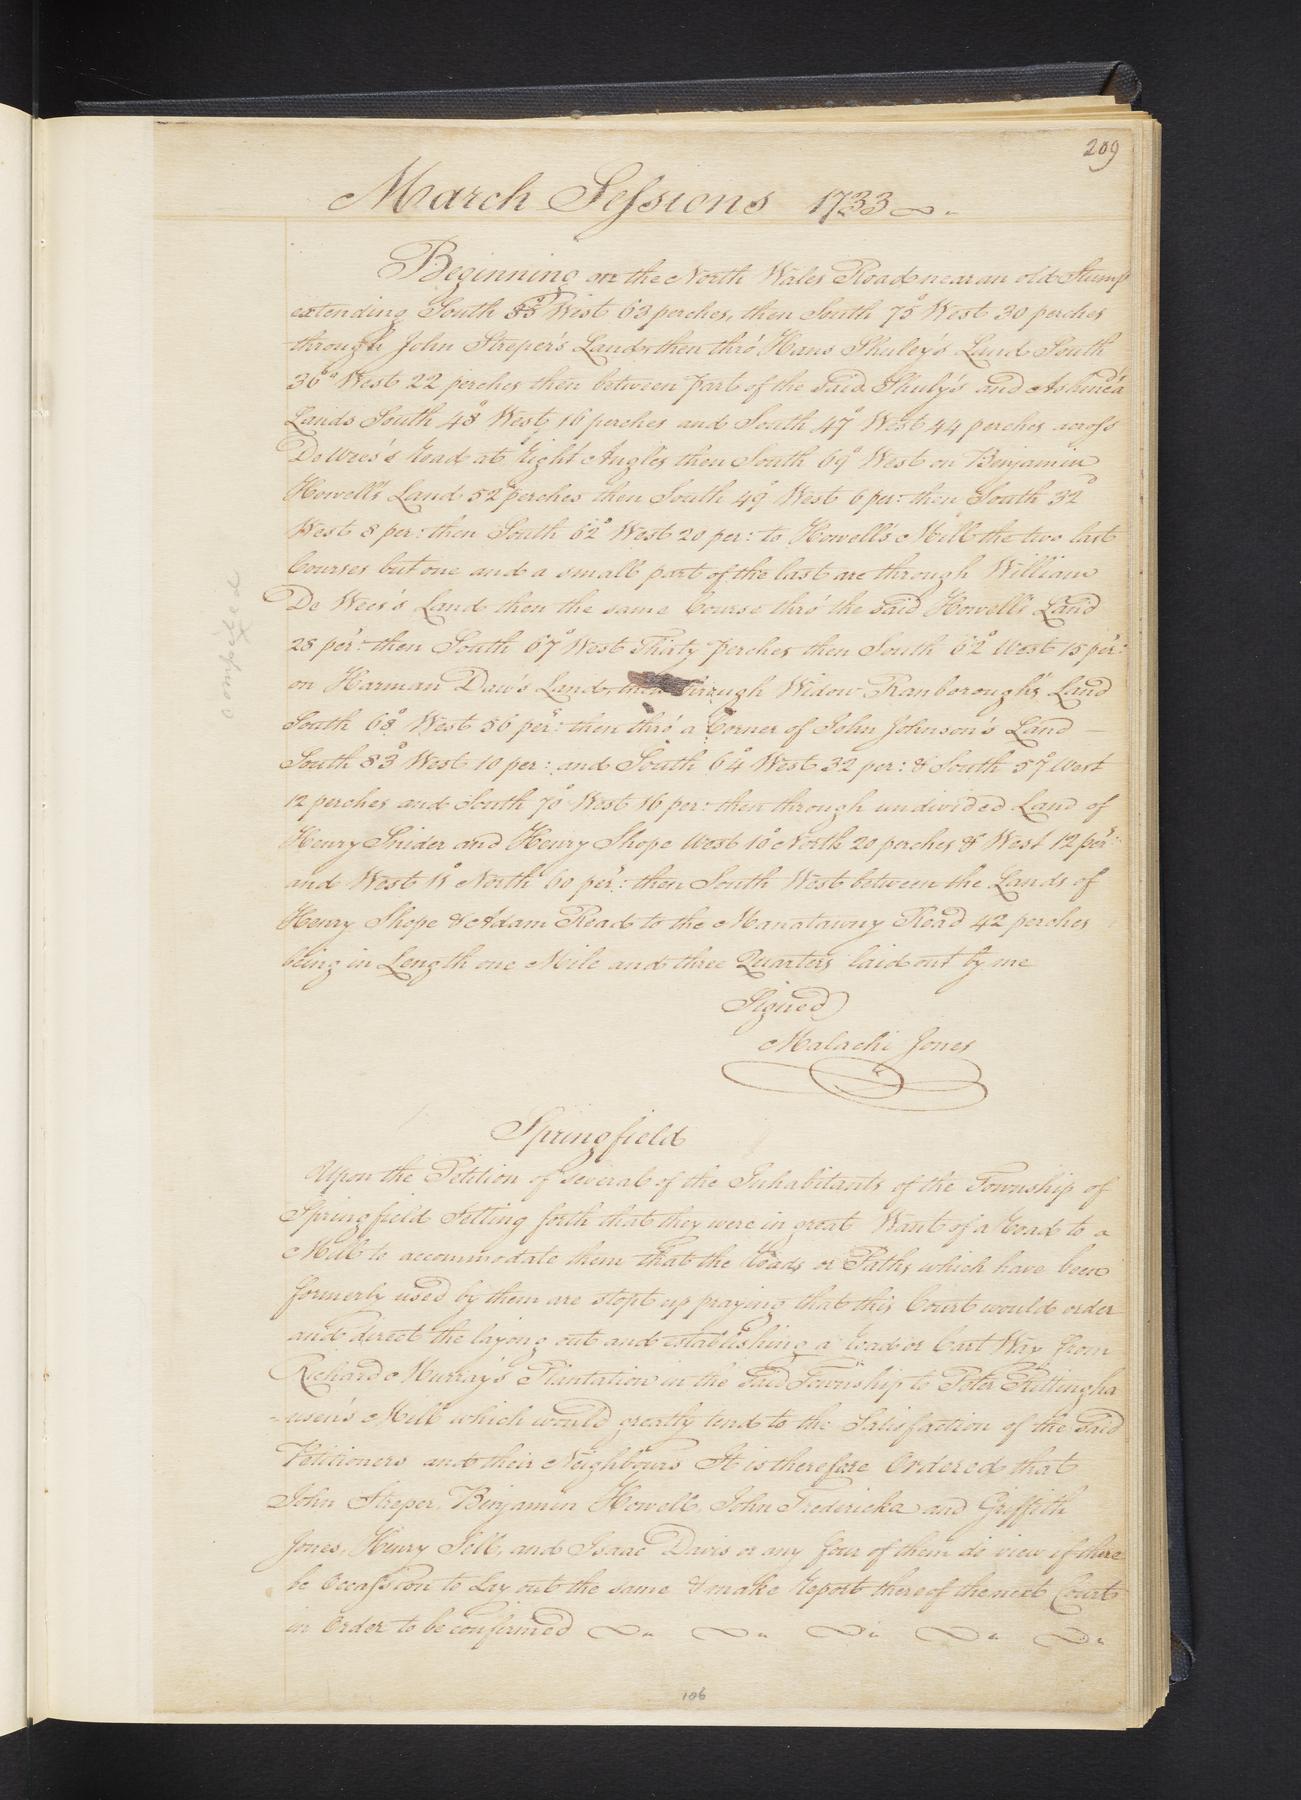 209
March Sessions 1733
Beginning on the North Wales Road near an old Stump
extending South West 63 perches, then South 75° West 30 perches
through John Streper's Land then thro' Hans Shuley's Land South
36° West 22 perches then between Part of the said Shuly's and
Lands South 48° West 16 perches and South 47° West 44 perches across
DeWees's Road at Right Angles then South 69° West on Benjamin
Howell's Land 52 perches then South 49° West 6 per: then South 32°
West 8 per: then South 62° West 20 per: to Howell's Mill the two last
Courses but one and a small part of the last are through William
De Wees's Land then the same Course thro' the said Howell's Land
28 per: then South 67° West Thirty Perches then South 62° West 15 per:
on Harman Daw's Land then through Widow Ranborough's Land
South 68° West 56 per: then thro' a Corner of John Johnson's Land
South 83° West 10 per: and South 64° West 32 per: & South 57° West
12 perches and South 70° West 16 per: then through undivided Land of
Henry Snider and Henry Shope West 10° North 20 perches & West 12 per:
and West 11° North 60 per: then South West between the Lands of
Henry Shope & Adam Read to the Manatawny Road 42 perches
being in Length one Mile and three Quarters laid out by me
Signed
Malachi Jones
compared
Springfield
Upon the Petition of several of the Inhabitants of the Township of
Springfield Setting forth that they were in great Want of a Road to a
Mill to accommodate them That the Roads or Paths which have been
formerly used by them are stopt up praying that this Court would order
and direct the laying out and establishing a Road or Cart Way from
Richard Murray's Plantation in the said Township to Peter Rittingha
-usen's Mill which would greatly tend to the Satisfaction of the said
Petitioners and their Neighbours It is therefore Ordered that
John Streper, Benjamin Howell, John Fredericka and Griffith
Jones, Henry Sell, and Isaac Davis or any four of them do view if there
be Occassion to Lay out the same & make Report thereof the next Court
in Order to be confirmed
106